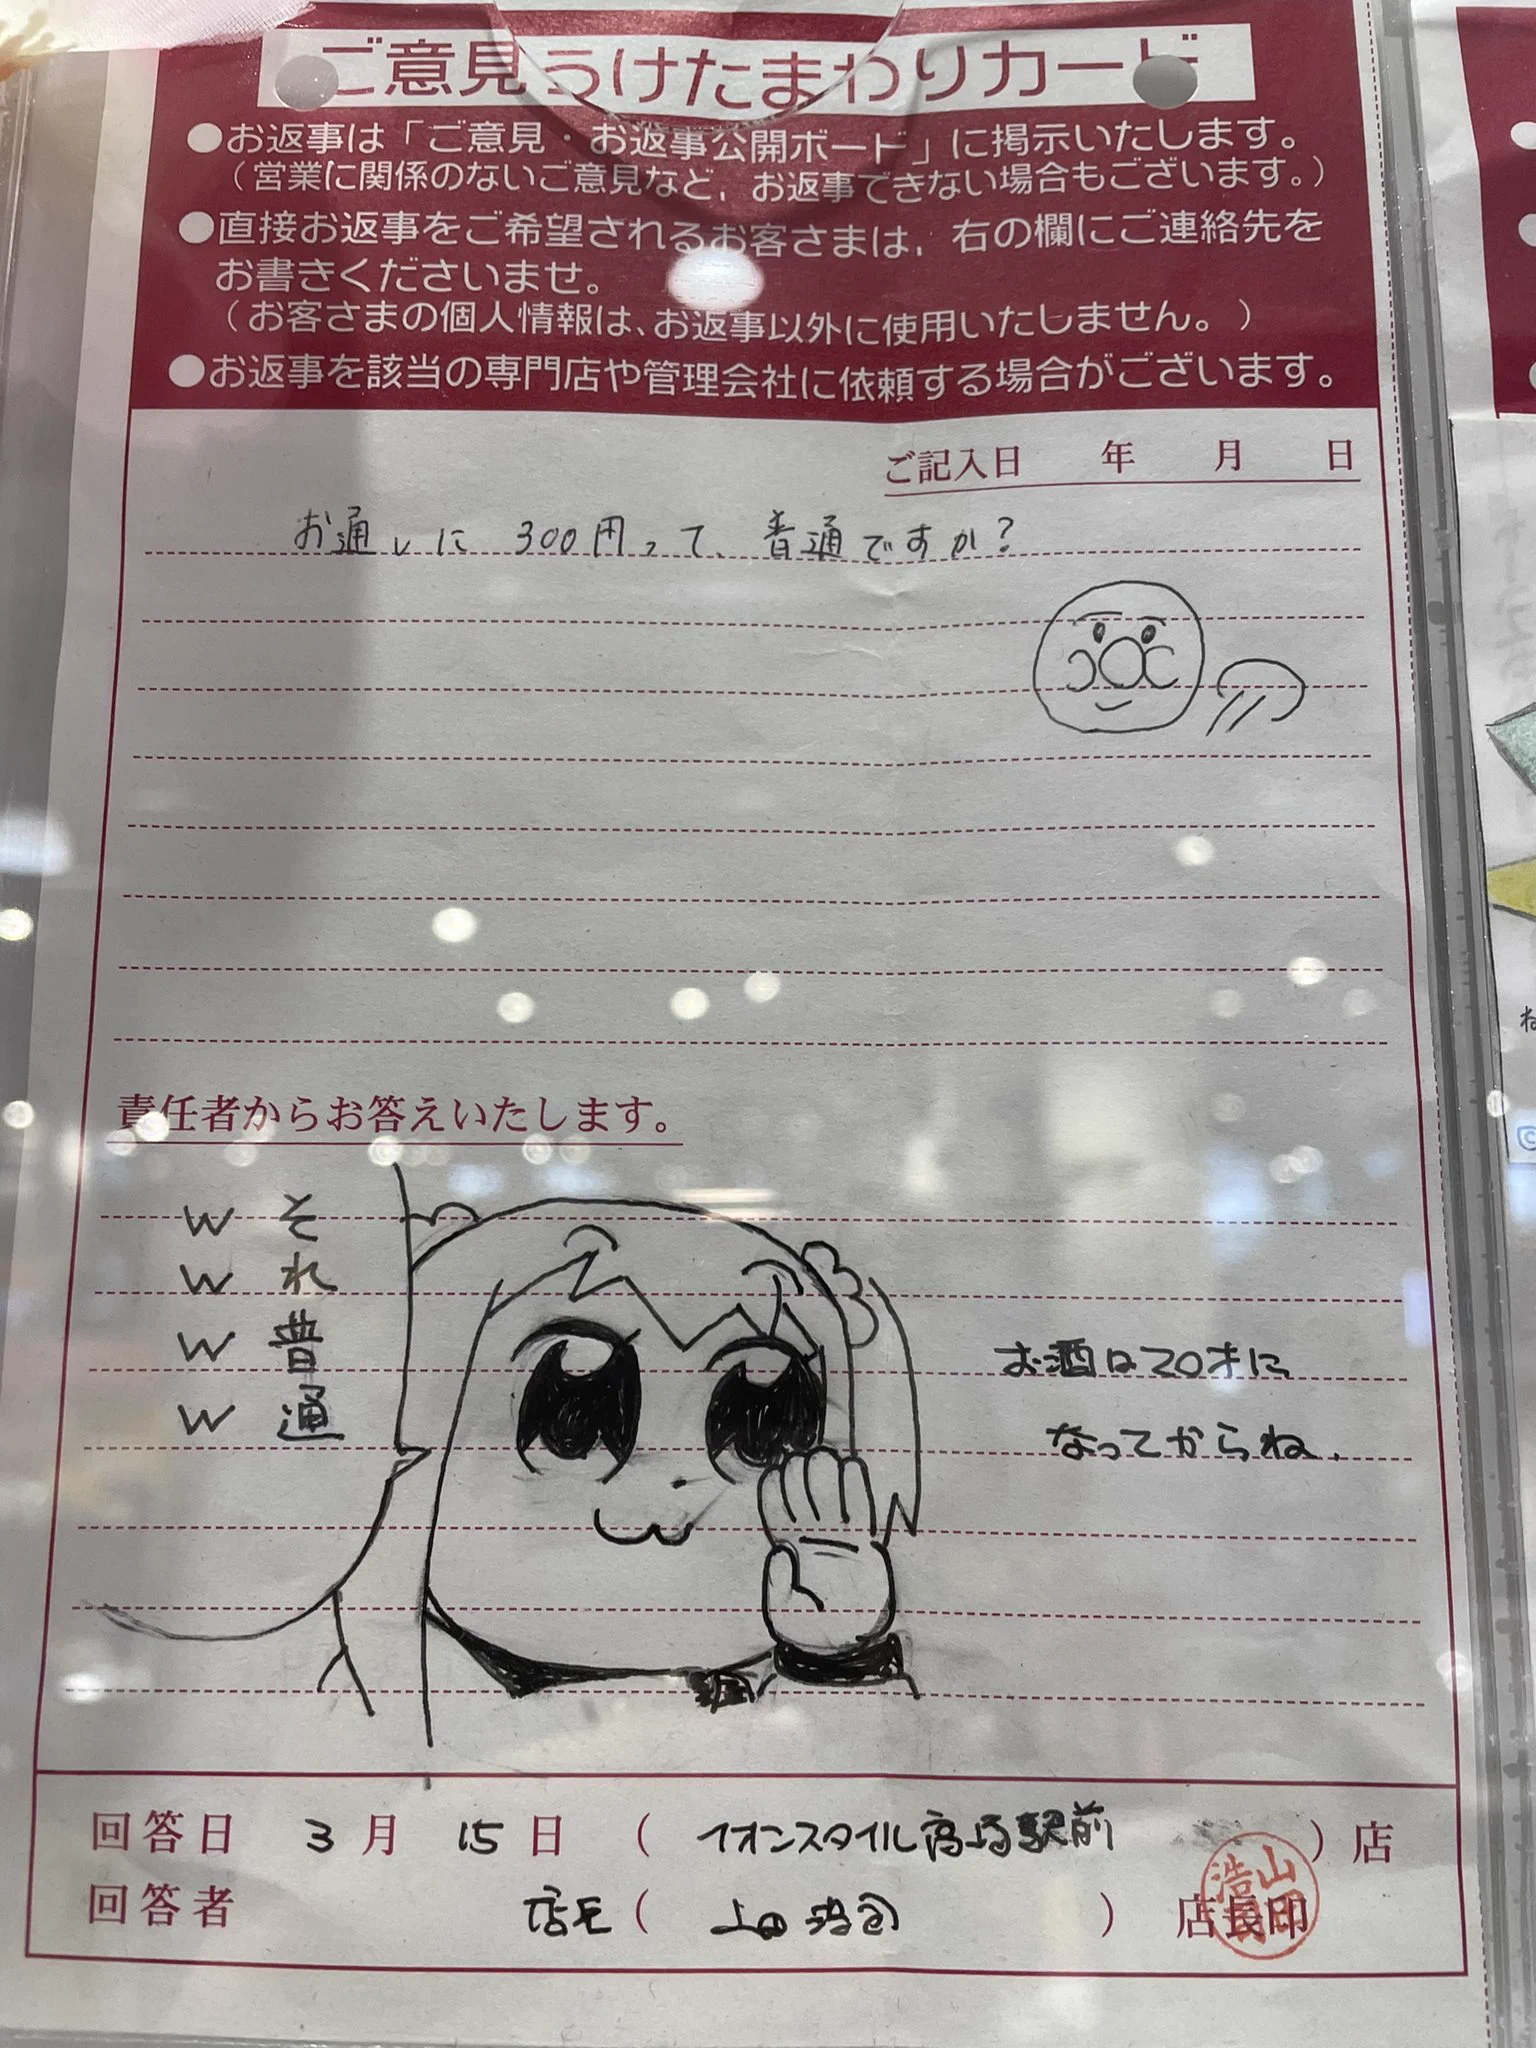 ご意見うけたまわりカード
●お返事は「ご意見・お返事公開ボード」に掲示いたします。
（営業に関係のないご意見など、お返事できない場合もございます。）
●直接お返事をご希望されるお客さまは、右の欄にご連絡先を
お書きくださいませ。
（お客さまの個人情報は、お返事以外に使用いたしません。）
●お返事を該当の専門店や管理会社に依頼する場合がございます。
ご記入日　年　月　日
お通しに 300円って、普通ですか?
責任者からお答えいたします。
それ普通
wwww
お酒は20才に
なってからね.
回答日 3月 15日 （ イオンスタイル高崎駅前 ）店
回答者 店長（ 上田 ） 店長印